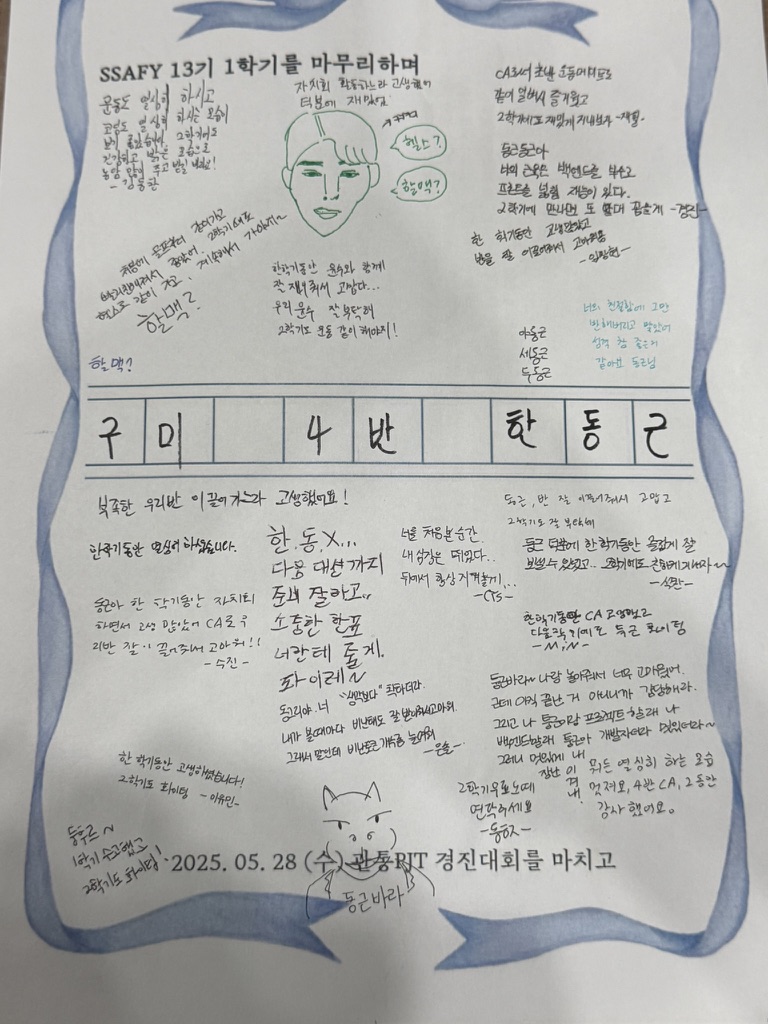 SSAFY 13기 1학기를 마무리하며
운동도 열심히 하시고
코딩도 열심히 하시는 모습이
보기 좋았습니다. 2학기에도
건강하고 밝은 모습으로
농담 많이 주고 받길 바래요!
자치회 활동하느라 고생했어
덕분에 재밌었
헬스?
할맥?
CA로서 초반
같이 일해서 즐거웠고
2학기에도 재밌게 지내보자
둥근둥근아
너의 근육은 백엔드를 부수고
프론트를 넓힐 재능이 있다.
2학기에 만나면 또
한 학기동안 고생많았고
반을 잘 이끌어줘서 고마워용
처음에
헬스도 같이 가고, 계속해서 가야지~
할맥?
한학기동안 윤수와 함께
잘 고맙다...
우리 윤수 잘 부탁해
2학기도 운동 같이 해야지!
너의 친절함에 그만
반해버리고 말았어
성격 참 좋은거
같아요 동근님
야동근
세동근
두동근
할맥?
구 미 4 반 한 동 근
북적한 우리반 이끌어가느라 고생했어요!
한학기동안 열심히 하셨습니다.
동근아 한 학기동안 자치회
하면서 고생 많았어 CA로 우
리반 잘 이끌어줘서 고마워!!
-수진-
한.동.X...
다음 대선까지
존버 잘하고..
소중한 한표
너한테 줄게.
화이레~
너를 처음본 순간
내 심장은 뛰었다..
뒤에서 항상 지켜볼게...
-CTS-
동근, 반 잘 이끌어줘서 고맙고
2학기도 잘 부탁해
동근 덕분에 한학기동안 즐겁게 잘
보낼수 있었고.. 2학기에도 친하게 지내자~
한학기동안 CA 고생했고
다음학기에도 동근 화이팅
동그리야. 너 "생각보다" 착하더라.
내가 볼때마다 비난해도 잘 받아줘서 고마워.
그래서 말인데 비난토큰 개수좀 늘려줘
동근바라~ 나랑 놀아줘서 너무 고마웠어.
근데 아직 끝난 거 아니니까 감당해라.
그리고 나 동근이랑 프로젝트 할래 나
백엔드할래 동근아 개발자여라 멋있어라~
그러니 멋있게 내
장난 이
겨
내.
한 학기동안 고생하셨습니다!
2학기도 화이팅 -이유민-
2학기 때
연락하세요
뭐든 열심히 하는 모습
멋져요, 4반 CA, 2동안
감사했어요.
1학기 수고했고
2학기도 화이팅!
2025. 05. 28 (수) 관통PJT 경진대회를 마치고
동근바라